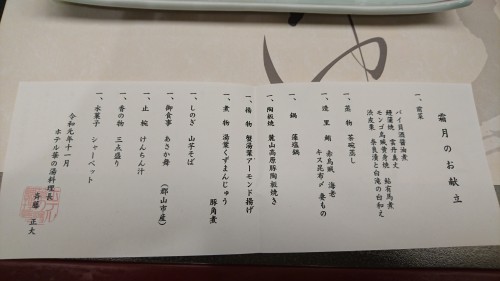 霜月のお献立
一、前菜
バイ貝酒醤油煮
鰻蒲焼 雲丹真丈 鮎有馬煮
モンゴ烏賊黄身焼
渋皮栗 奈良漬と白滝の白和え
一、蒸物 茶碗蒸し
一、造里 鮪 赤烏賊 海老
キス昆布〆 妻もの
一、鍋 藻塩鍋
一、陶板焼 麓山高原豚陶板焼き
一、揚物 蟹湯葉アーモンド揚げ
一、煮物 湯葉くずまんじゅう
豚角煮
一、しのぎ 山芋そば
一、御食事 あさか舞 (郡山市産)
一、止椀 けんちん汁
一、香の物 三点盛り
一、水菓子 シャーベット
令和元年十一月
ホテル華の湯料理長
斉藤 正大